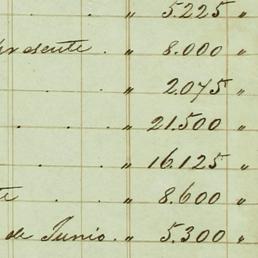 " 5.225 "
presente . " 8.000 "
. . " 2.075 "
. . . " 21.500 "
. . . " 16.125 "
" 8.600 "
de Junio . " 5.300 "